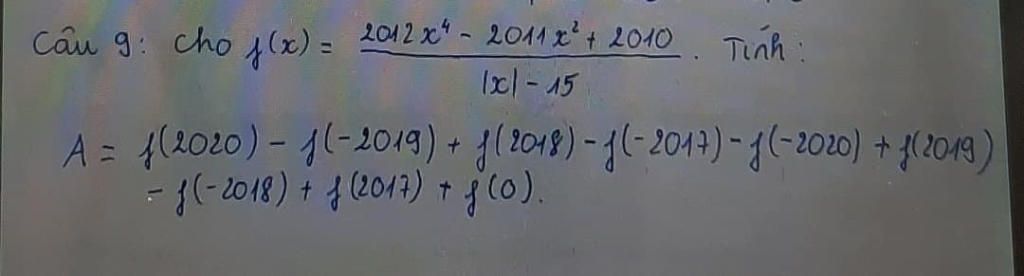 Câu 9: Cho f(x) = (2012x⁴ - 2011x² + 2010) / (|x| - 15) . Tính:
A = f(2020) - f(-2019) + f(2018) - f(-2017) - f(-2020) + f(2019)
- f(-2018) + f(2017) + f(0).